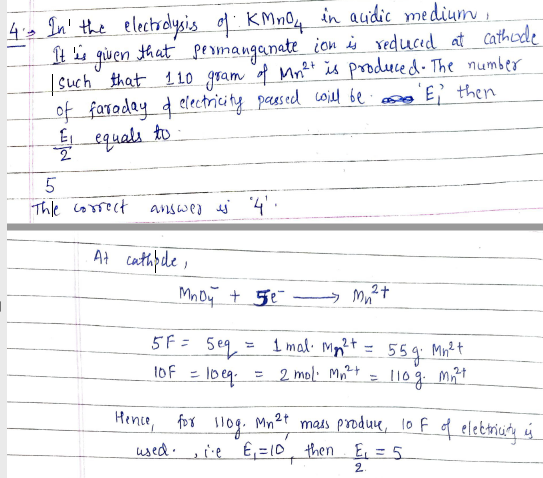 4:→ In' the electrolysis of KMnO4 in acidic medium,
It is given that permanganate ion is reduced at cathode
such that 110 gram of Mn2+ is produced. The number
of faraday of electricity passed will be 'E1' then
E1/2 equals to
5
The correct answer is '4'.
At cathode,
MnO4- + 5e- ⟶ Mn2+
5F = 5eq = 1 mol. Mn2+ = 55g. Mn2+
10F = 10eq. = 2 mol. Mn2+ = 110g. Mn2+
Hence, for 110g. Mn2+ mass produce, 10 F of electricity is
used. , i.e E1=10, then E1/2 = 5